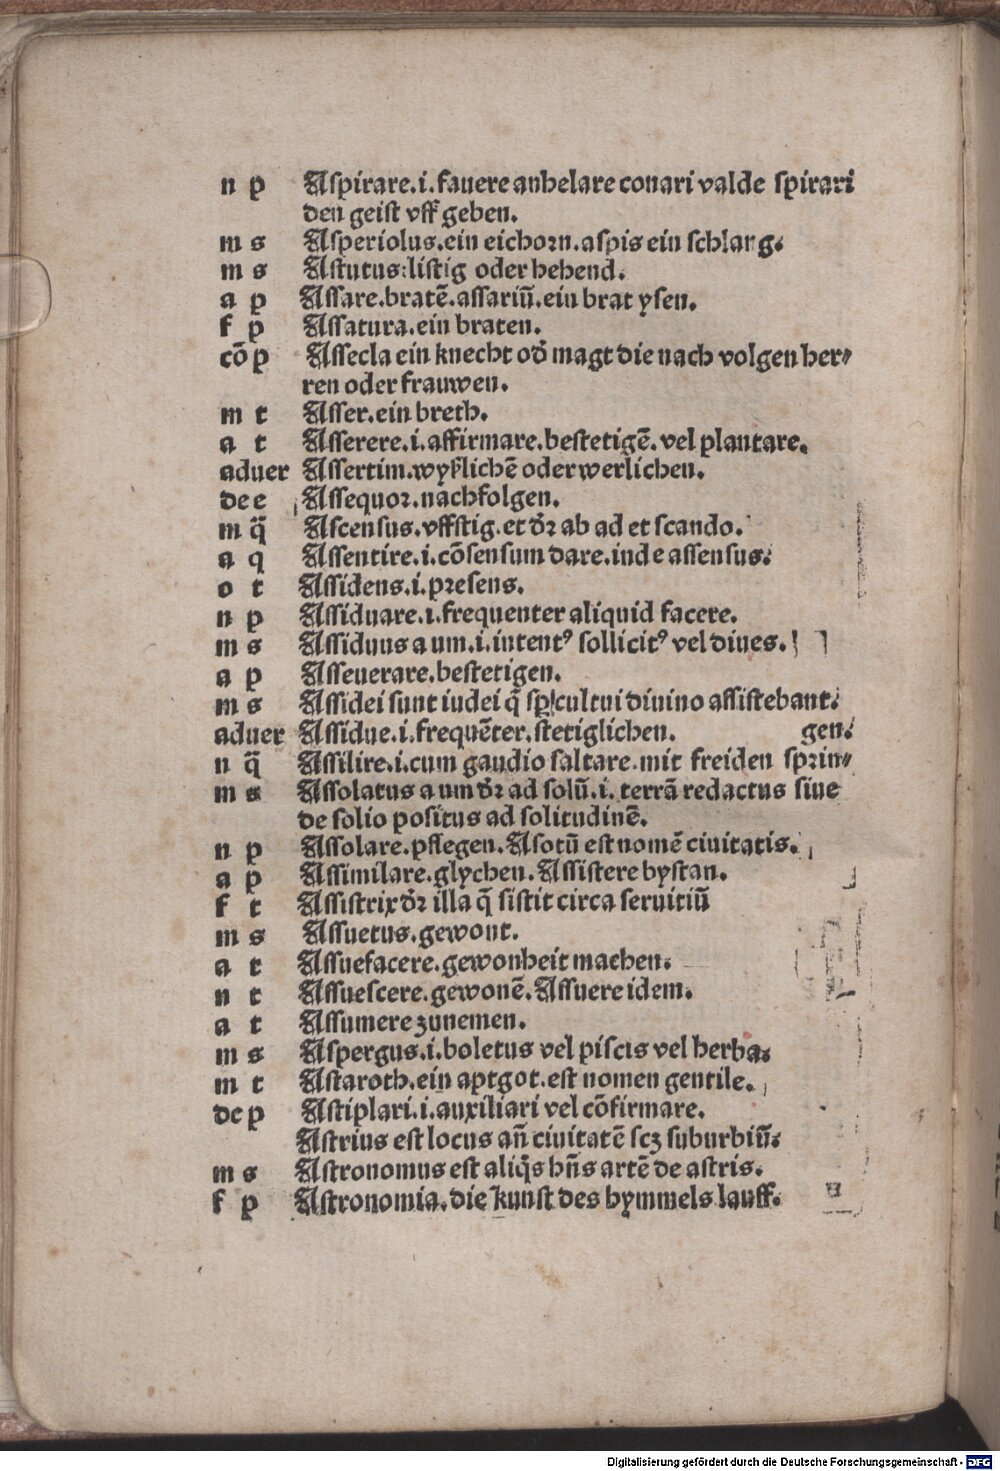 n p Aspirare.i.fauere anhelare conari valde spirari
den geist vff geben.
m s Asperiolus.ein eichorn.aspis ein schlang.
m s Astutus:listig oder behend.
a p Assare.bratē.assariū.ein brat ysen.
f p Assatura.ein braten.
cō p Assecla ein knecht oď magt die nach volgen her⸗
ren oder frauwen.
m t Asser.ein breth.
a t Asserere.i.affirmare.bestetigē.vel plantare.
aduer Assertim.wyßlichē oder werlichen.
de e Assequor.nachfolgen.
m q̈ Ascensus.vffstig.et dr̄ ab ad et scando.
a q Assentire.i.cōsensum dare.inde assensus.
o t Assidens.i.presens.
n p Assiduare.i.frequenter aliquid facere.
m s Assiduus a um.i.intentꝰ sollicitꝰ vel diues.
a p Asseuerare.bestetigen.
m s Assidei sunt iudei q̄ sp̱ cultui diuino assistebant.
aduer Assidue.i.frequēter.stetiglichen. gen.
n q̈ Assilire.i.cum gaudio saltare.mit freiden sprin⸗
m s Assolatus a um dr̄ ad solū.i.terrā redactus siue
de solio positus ad solitudinē.
n p Assolare.pflegen.Asotū est nomē ciuitatis.
a p Assimilare.glychen.Assistere bystan.
f t Assistrix dr̄ illa q̄ sistit circa seruitiū
m s Assuetus.gewont.
a t Assuefacere.gewonheit machen.
n t Assuescere.gewonē.Assuere idem.
a t Assumere zunemen.
m s Aspergus.i.boletus vel piscis vel herba.
m t Astaroth.ein aptgot.est nomen gentile.
de p Astiplari.i.auxiliari vel cōfirmare.
Astrius est locus añ ciuitatē scꝫ suburbiū.
m s Astronomus est aliq̇s hñs artē de astris.
f p Astronomia.die kunst des hymmels lauff.
Digitalisierung gefördert durch die Deutsche Forschungsgemeinschaft - DFG